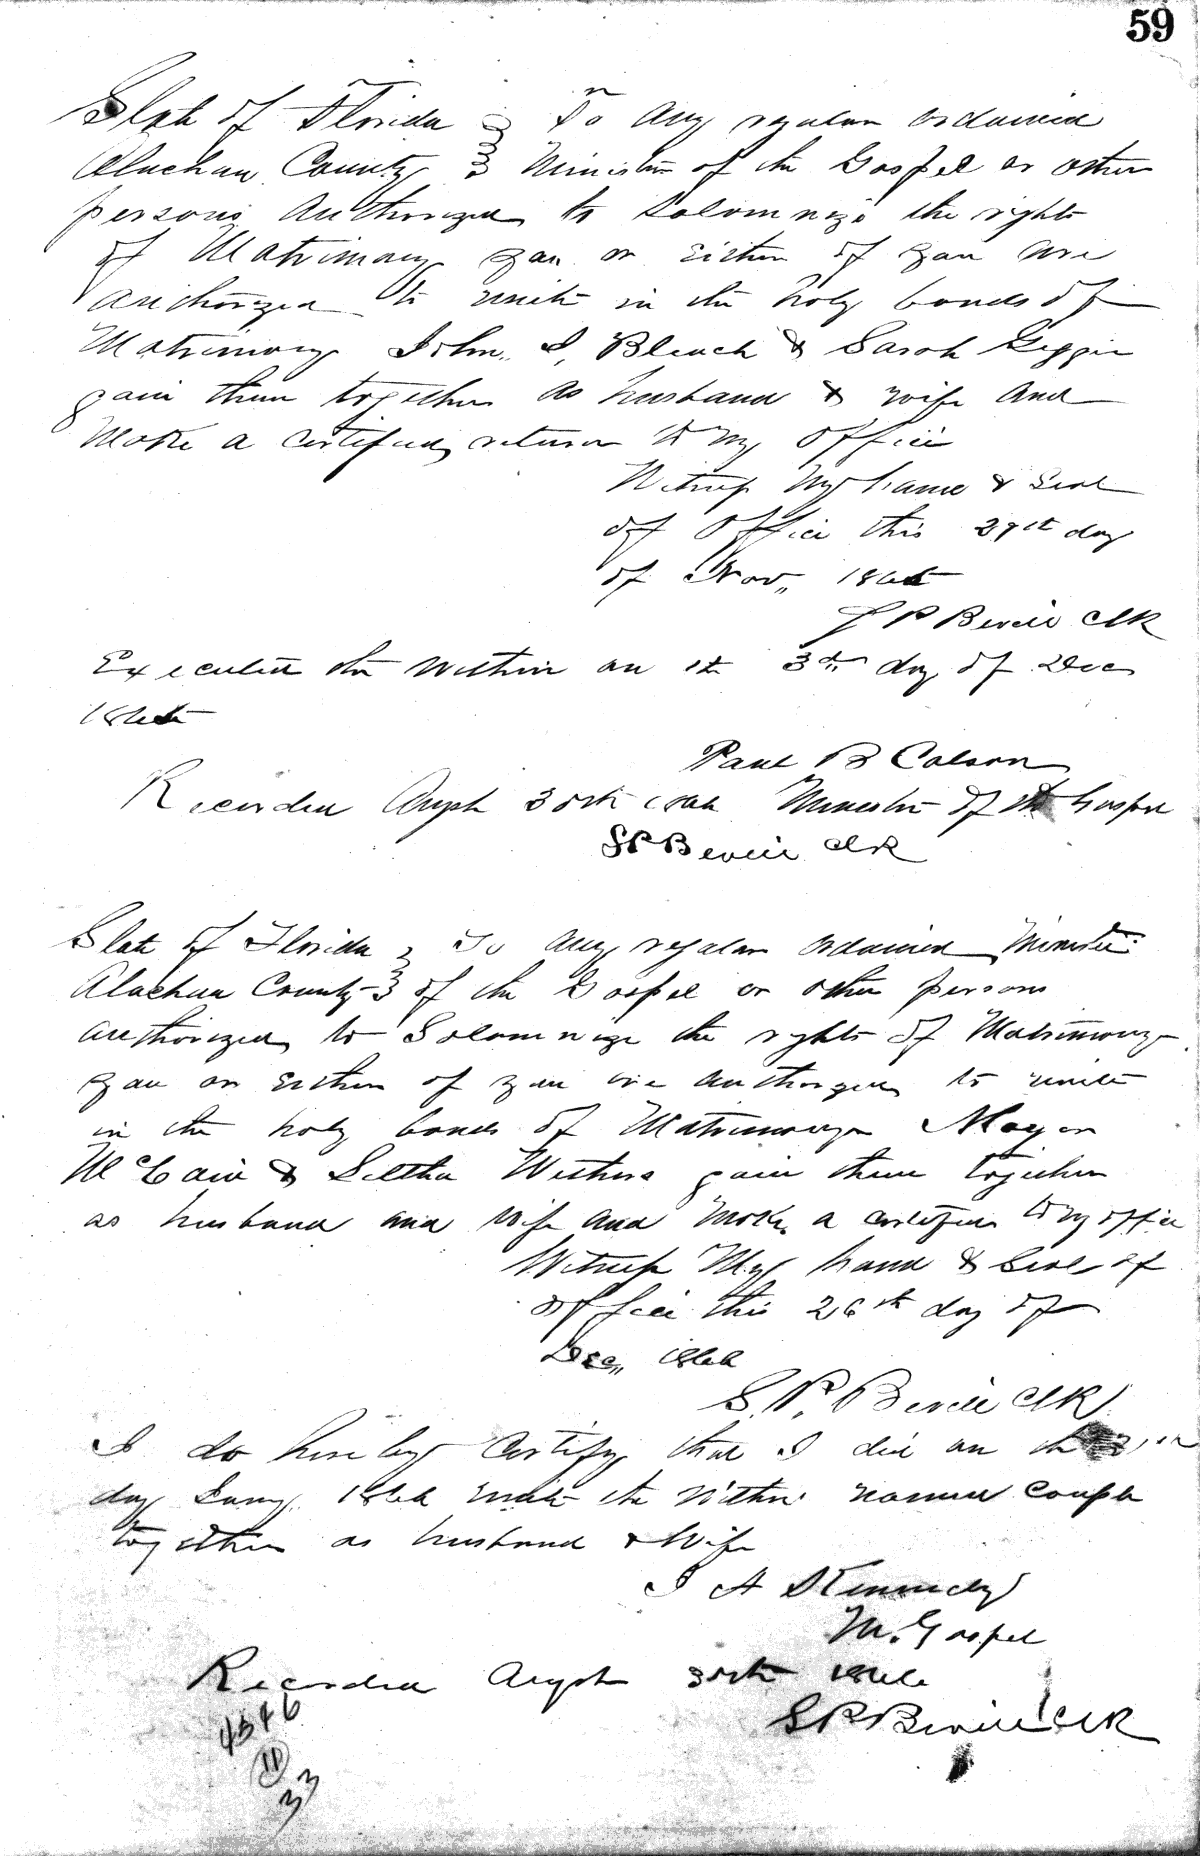 59
State of Florida } To any regular ordained
Alachua County } Minister of the Gospel or other
persons Authorized to Solomnize the rights
of Matrimony you or either of you are
authorized to unite in the holy bonds of
Matrimony John Bleach & Sarah
join them together as husband & wife and
Make a certified return to my office
Witness My hand & Seal
of Office this day
of Nov,,
S P Bevill Clk
Executed the within on the 3th day of Dec
Paul B Colson
Recorded Augst 30th 1866 Minister of the Gospel
S P Bevill Clk
State of Florida } To any regular ordained Minister
Alachua County } of the Gospel or other persons
authorized to Solomnize the rights of Matrimony
you or either of you are authorized to unite
in the holy bonds of Matrimony
McCain & Withers join them together
as husband and wife and make a certified to my office
Witness My hand & Seal of
office this 26th day of
Dec,, 1866
S. P. Bevill Clk
I do hereby certify that I did on the
day Jany 1866 unite the within named couple
together as husband & Wife
Kennedy
M. Gospel
Recorded Augst 30th 1866
S P Bevill Clk
4546
11
33